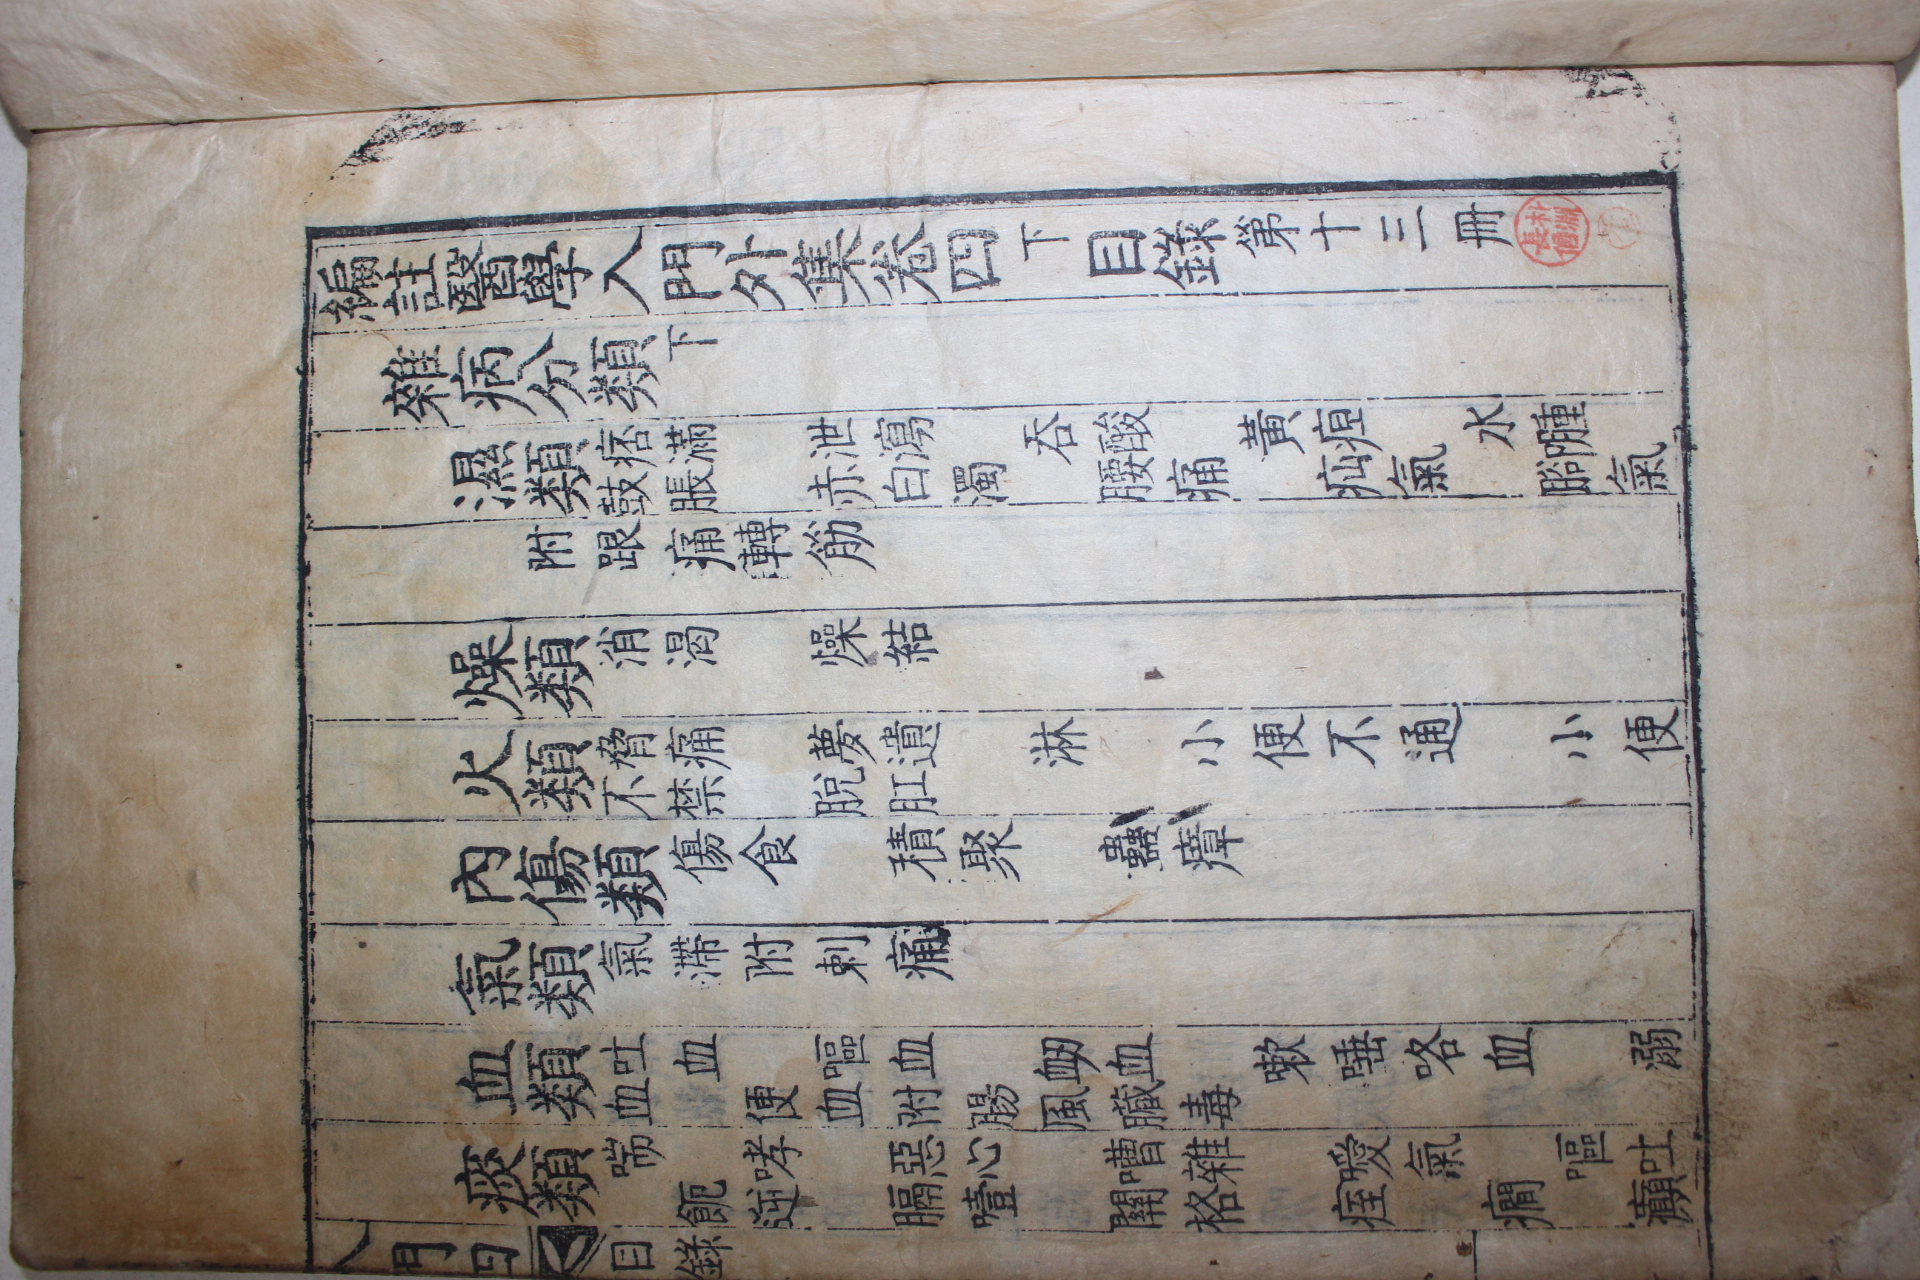 編註醫學入門外集卷四下目錄第十三冊
雜病分類下
濕類 痞滿 泄瀉 吞酸 黃疸 水腫
鼓脹 赤白濁 腰痛 疝氣 脚氣
附跟痛轉筋
燥類 消渴 燥結
火類 脅痛 夢遺 淋 小便不通 小便
不禁 脫肛
內傷類 傷食 積聚 蠱瘴
氣類 氣滯附刺痛
血類 吐血 嘔血 衄血 嗽唾咯血 溺
血 便血附腸風臟毒
痰類 喘 哮 惡心 嘈雜 噯氣 嘔吐
逆 膈噎 關格 痓 癎 癲
入門四 目錄